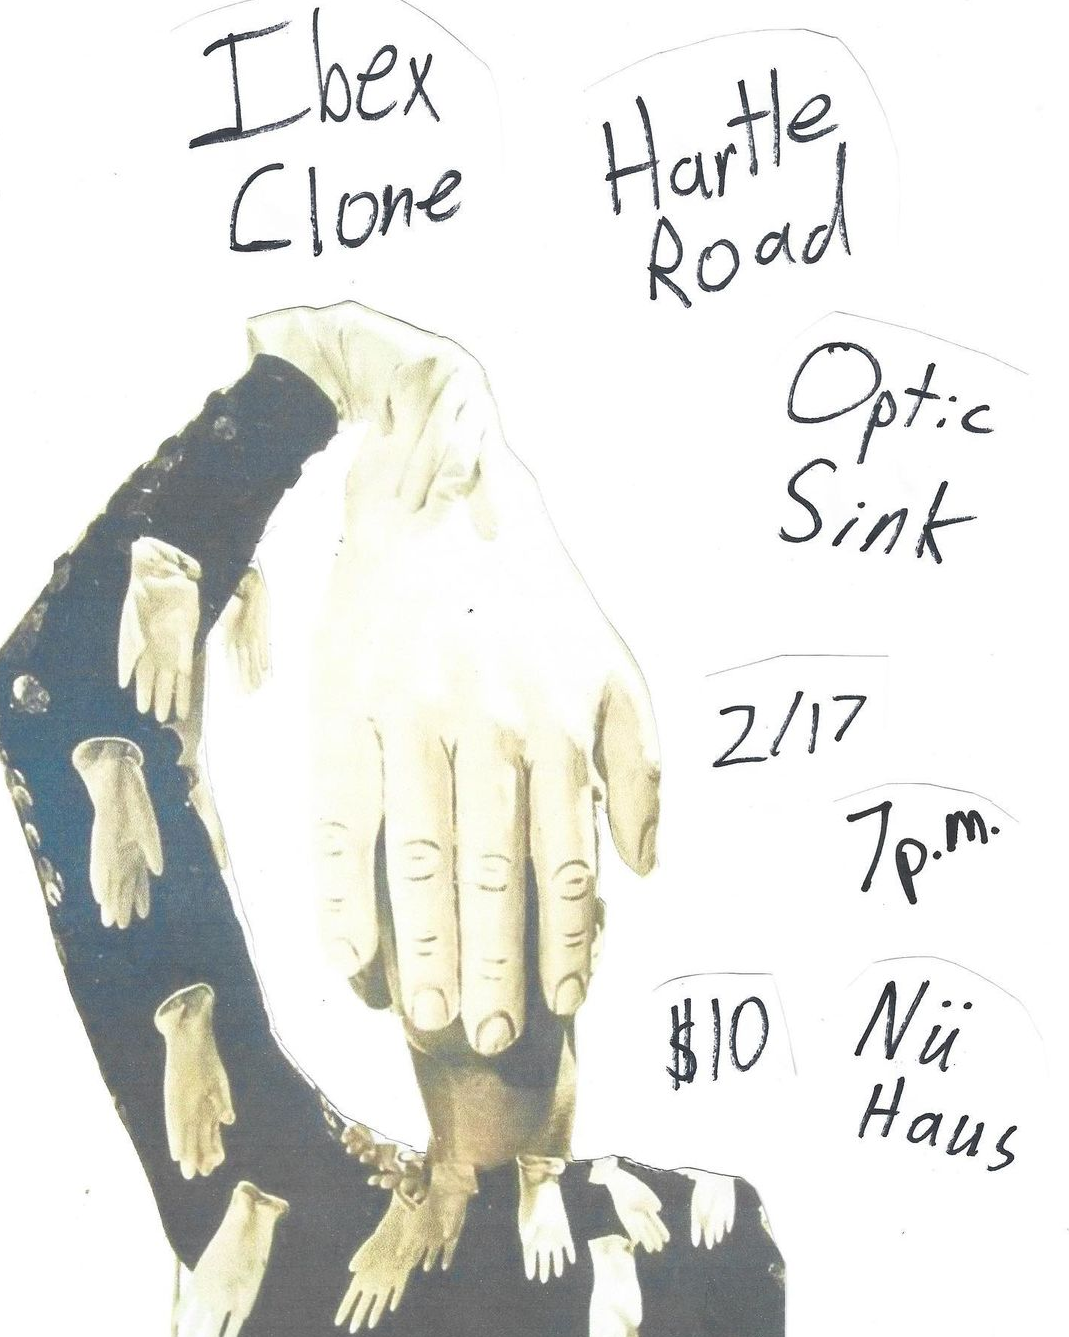 Ibex
Clone
Hartle
Road
Optic
Sink
2/17
7p.m.
$10
Nü
Haus